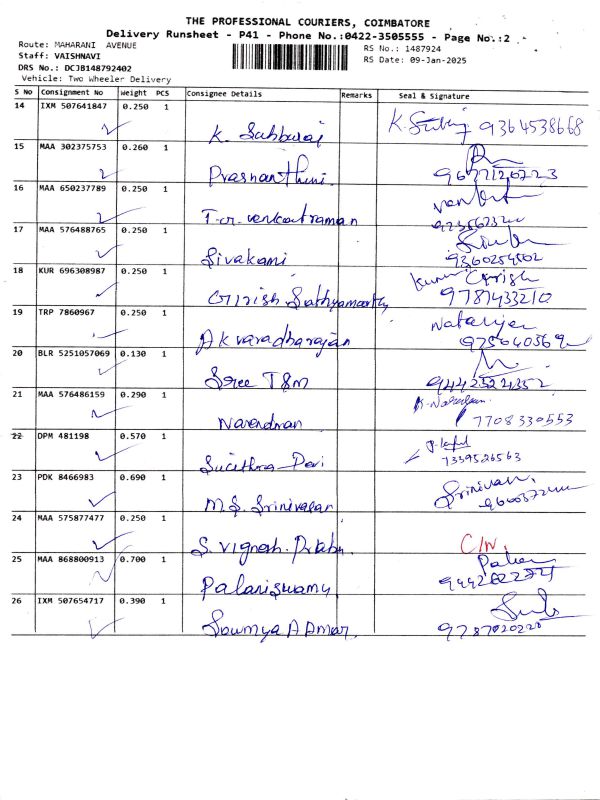 THE PROFESSIONAL COURIERS, COIMBATORE
Delivery Runsheet - P41 - Phone No.:0422-3505555 - Page No.:2
Route: MAHARANI AVENUE
RS No.: 1487924
Staff: VAISHNAVI
RS Date: 09-Jan-2025
DRS No.: DCJB148792402
Vehicle: Two Wheeler Delivery
S No Consignment No Weight PCS Consignee Details Remarks Seal & Signature
14 IXM 507641847 0.250 1
K. Sabburaj 9364538668
15 MAA 302375753 0.260 1
Prasnanthini
16 MAA 650237789 0.250 1
T-cr. venkatraman
17 MAA 576488765 0.250 1
Sivakami 9360254502
18 KUR 696308987 0.250 1
Girish Sathyamorthy 9787433210
19 TRP 7860967 0.250 1
A K varadharajan
20 BLR 5251057069 0.130 1
Sree TSM
21 MAA 576486159 0.290 1
Narendran 7708330553
22 DPM 481198 0.570 1
Sucithra Devi 7339526563
23 PDK 8466983 0.690 1
M.S. Srinivasan Srinivasan
24 MAA 575877477 0.250 1
S. Vignesh. Prabhu C/W.
25 MAA 868800913 0.700 1
Palaniswamy
26 IXM 507654717 0.390 1
Sowmya A Amar 9787020220